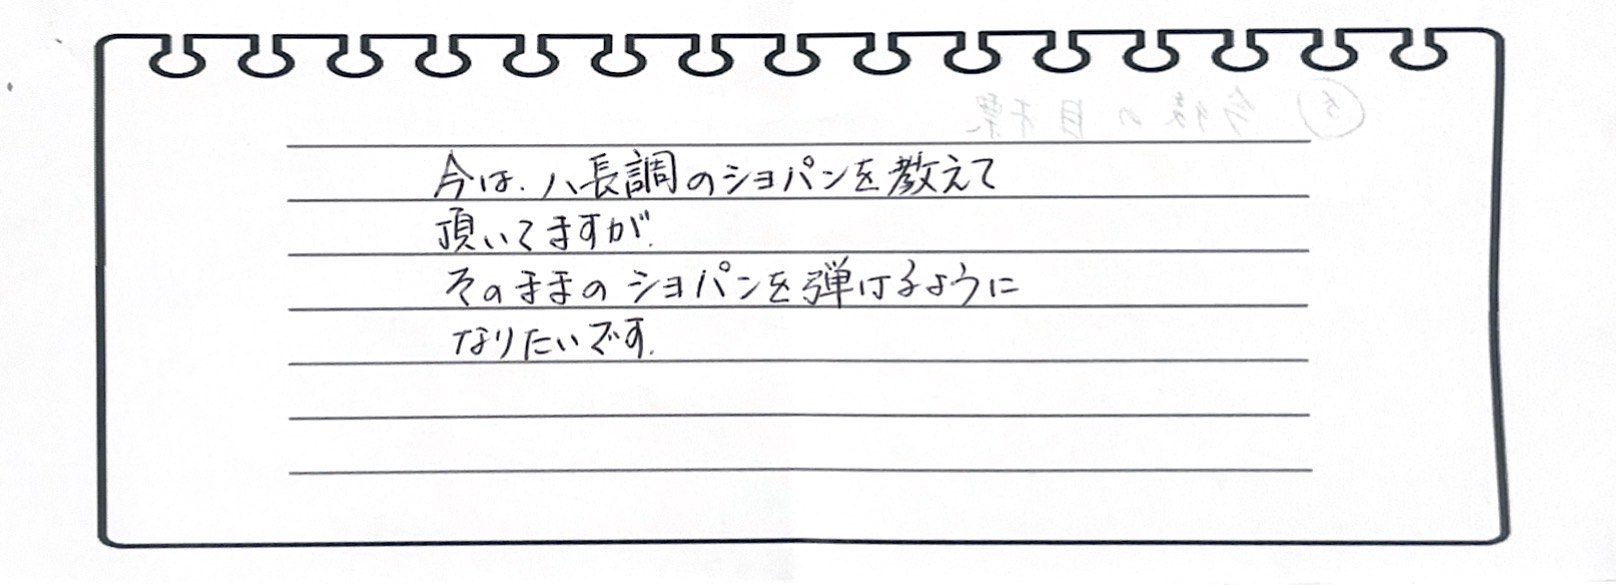 今は、ハ長調のショパンを教えて
頂いてますが、
そのままのショパンを弾けるように
なりたいです。